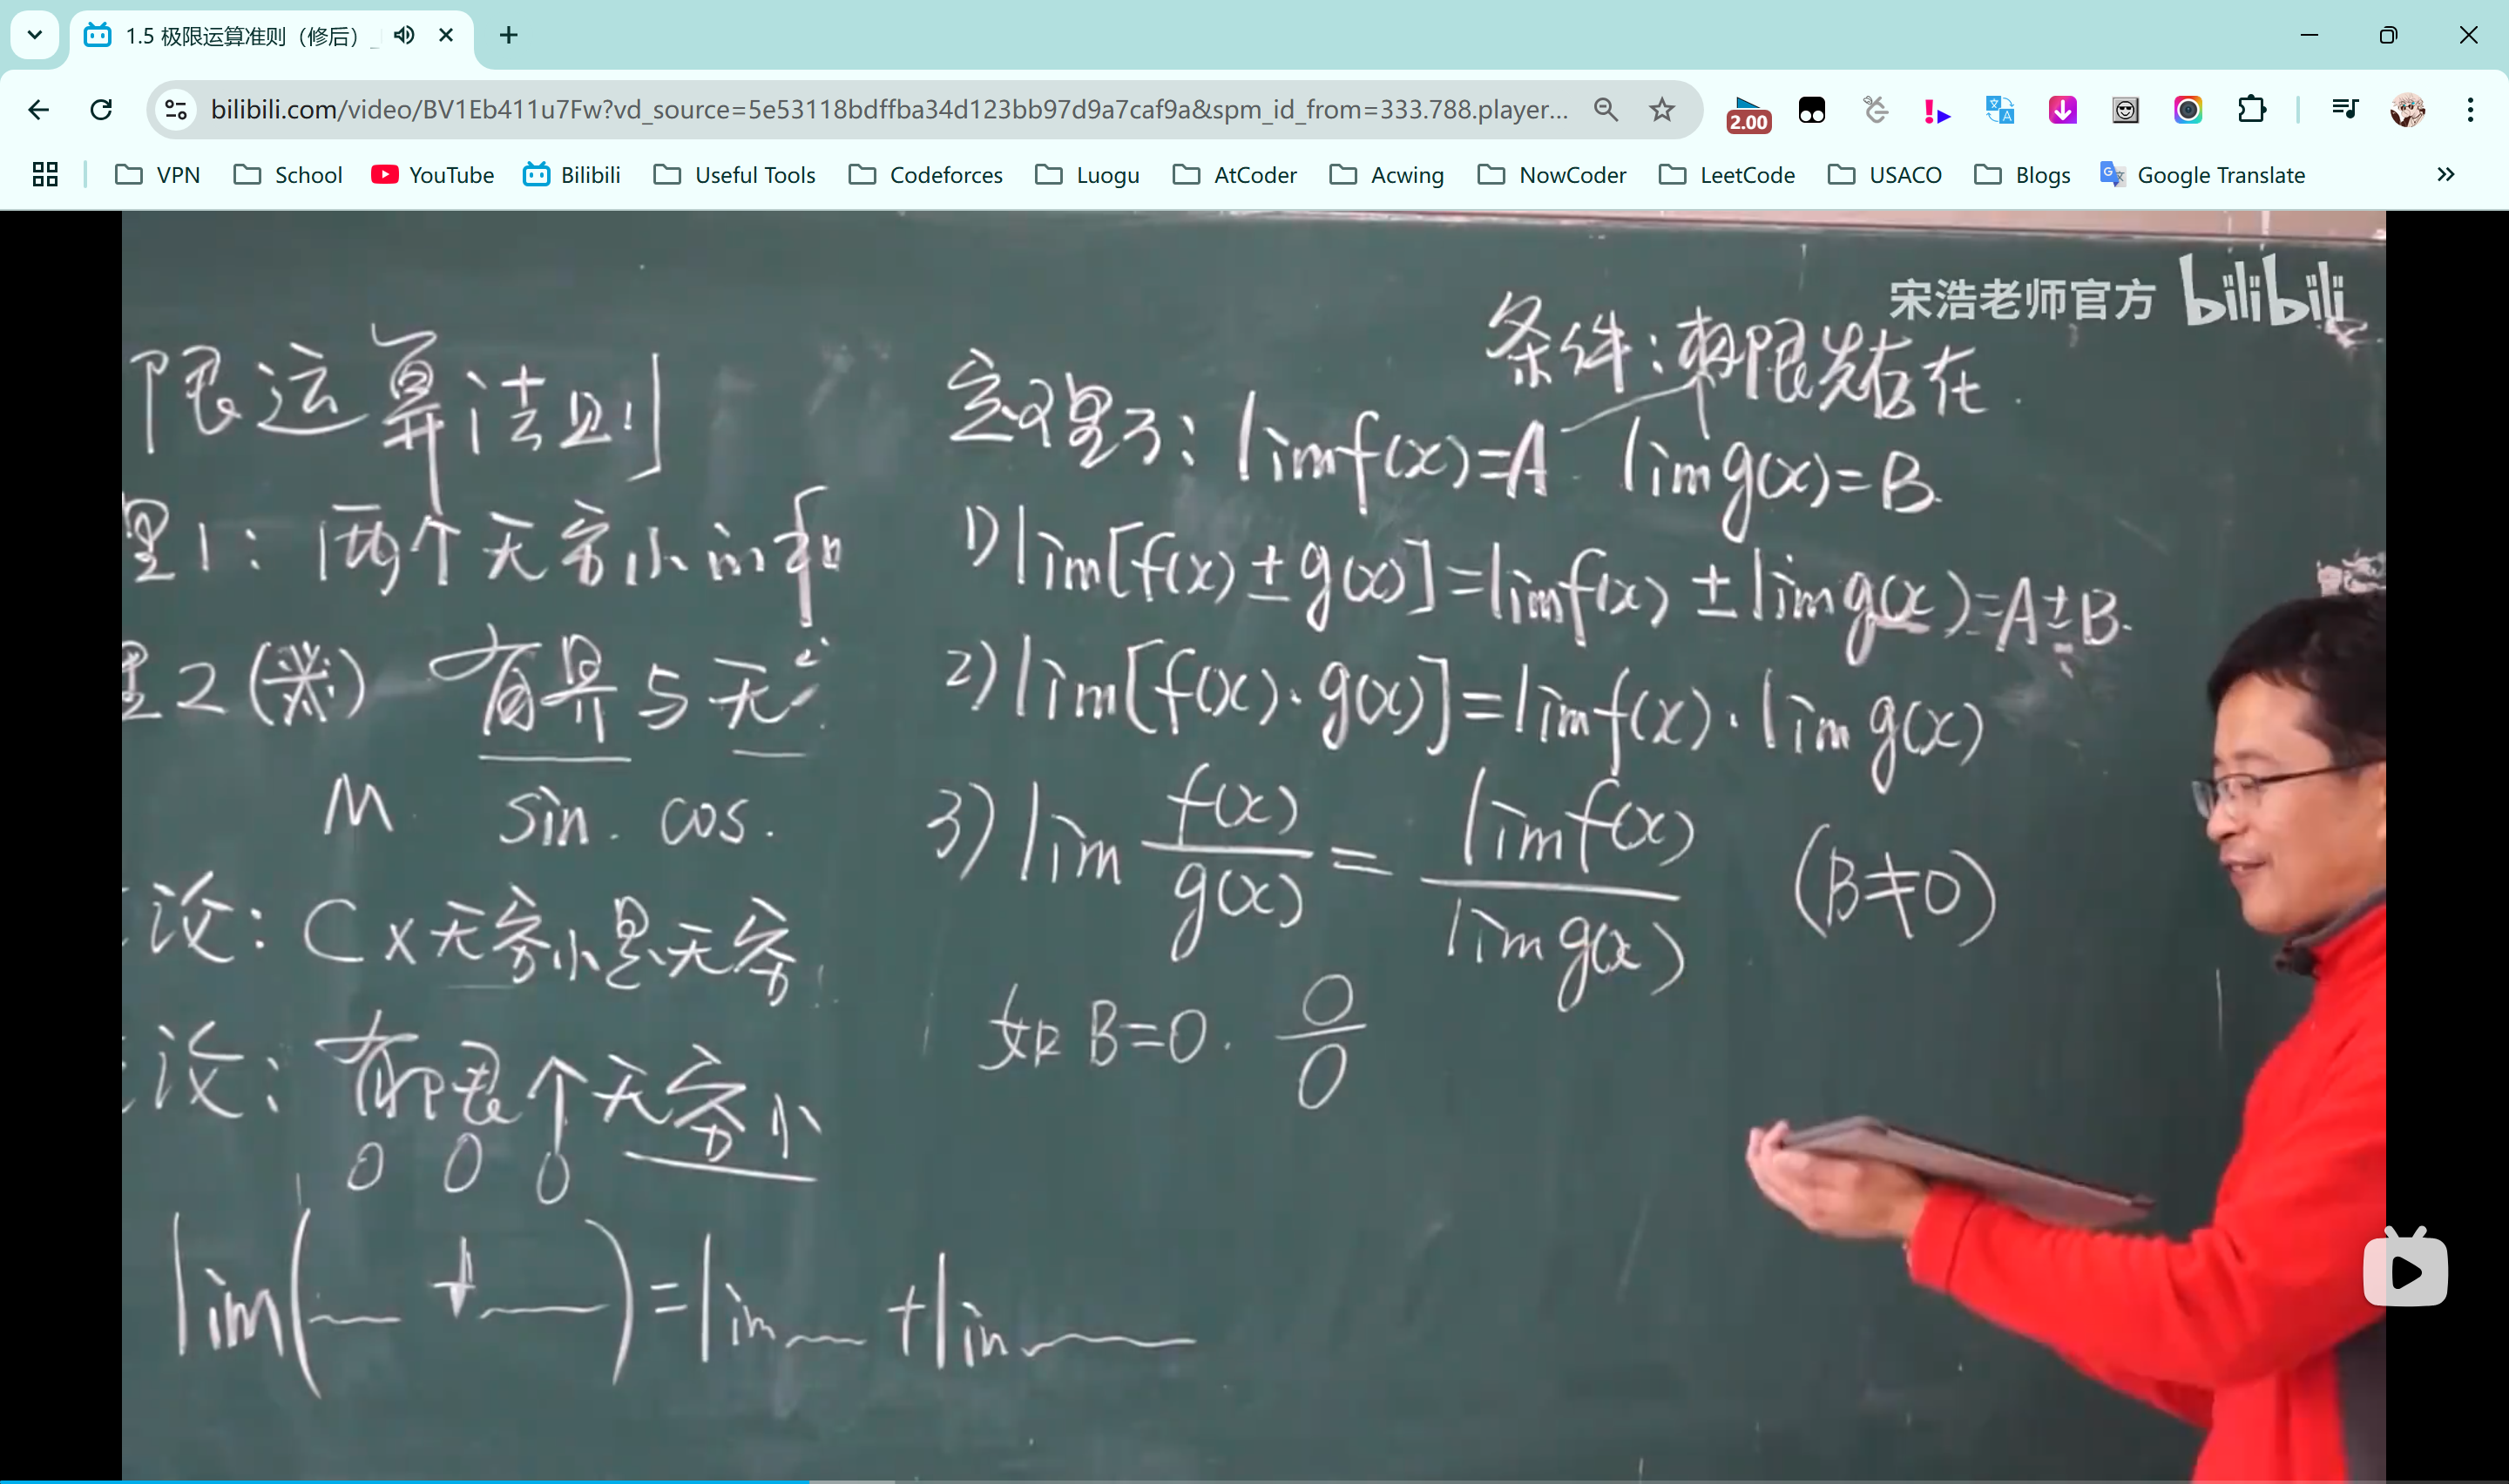 1.5 极限运算准则（修后）_
bilibili.com/video/BV1Eb411u7Fw?vd_source=5e53118bdffba34d123bb97d9a7caf9a&spm_id_from=333.788.player...
2.00
VPN School YouTube Bilibili Useful Tools Codeforces Luogu AtCoder Acwing NowCoder LeetCode USACO Blogs Google Translate
宋浩老师官方 bilibili
限运算法则
理1：两个无穷小的和
理2(※) 有界与无
M. sin. cos.
论：C×无穷小是无穷
论：有限个无穷小
0 0 0
lim( + )=lim +lim
条件：极限先存在.
定理3：lim f(x)=A lim g(x)=B.
1) lim[f(x)±g(x)]=lim f(x)±lim g(x)=A±B.
2) lim[f(x)·g(x)]=lim f(x)·lim g(x)
3) lim f(x)/g(x) = lim f(x)/lim g(x) (B≠0)
如B=0. 0/0